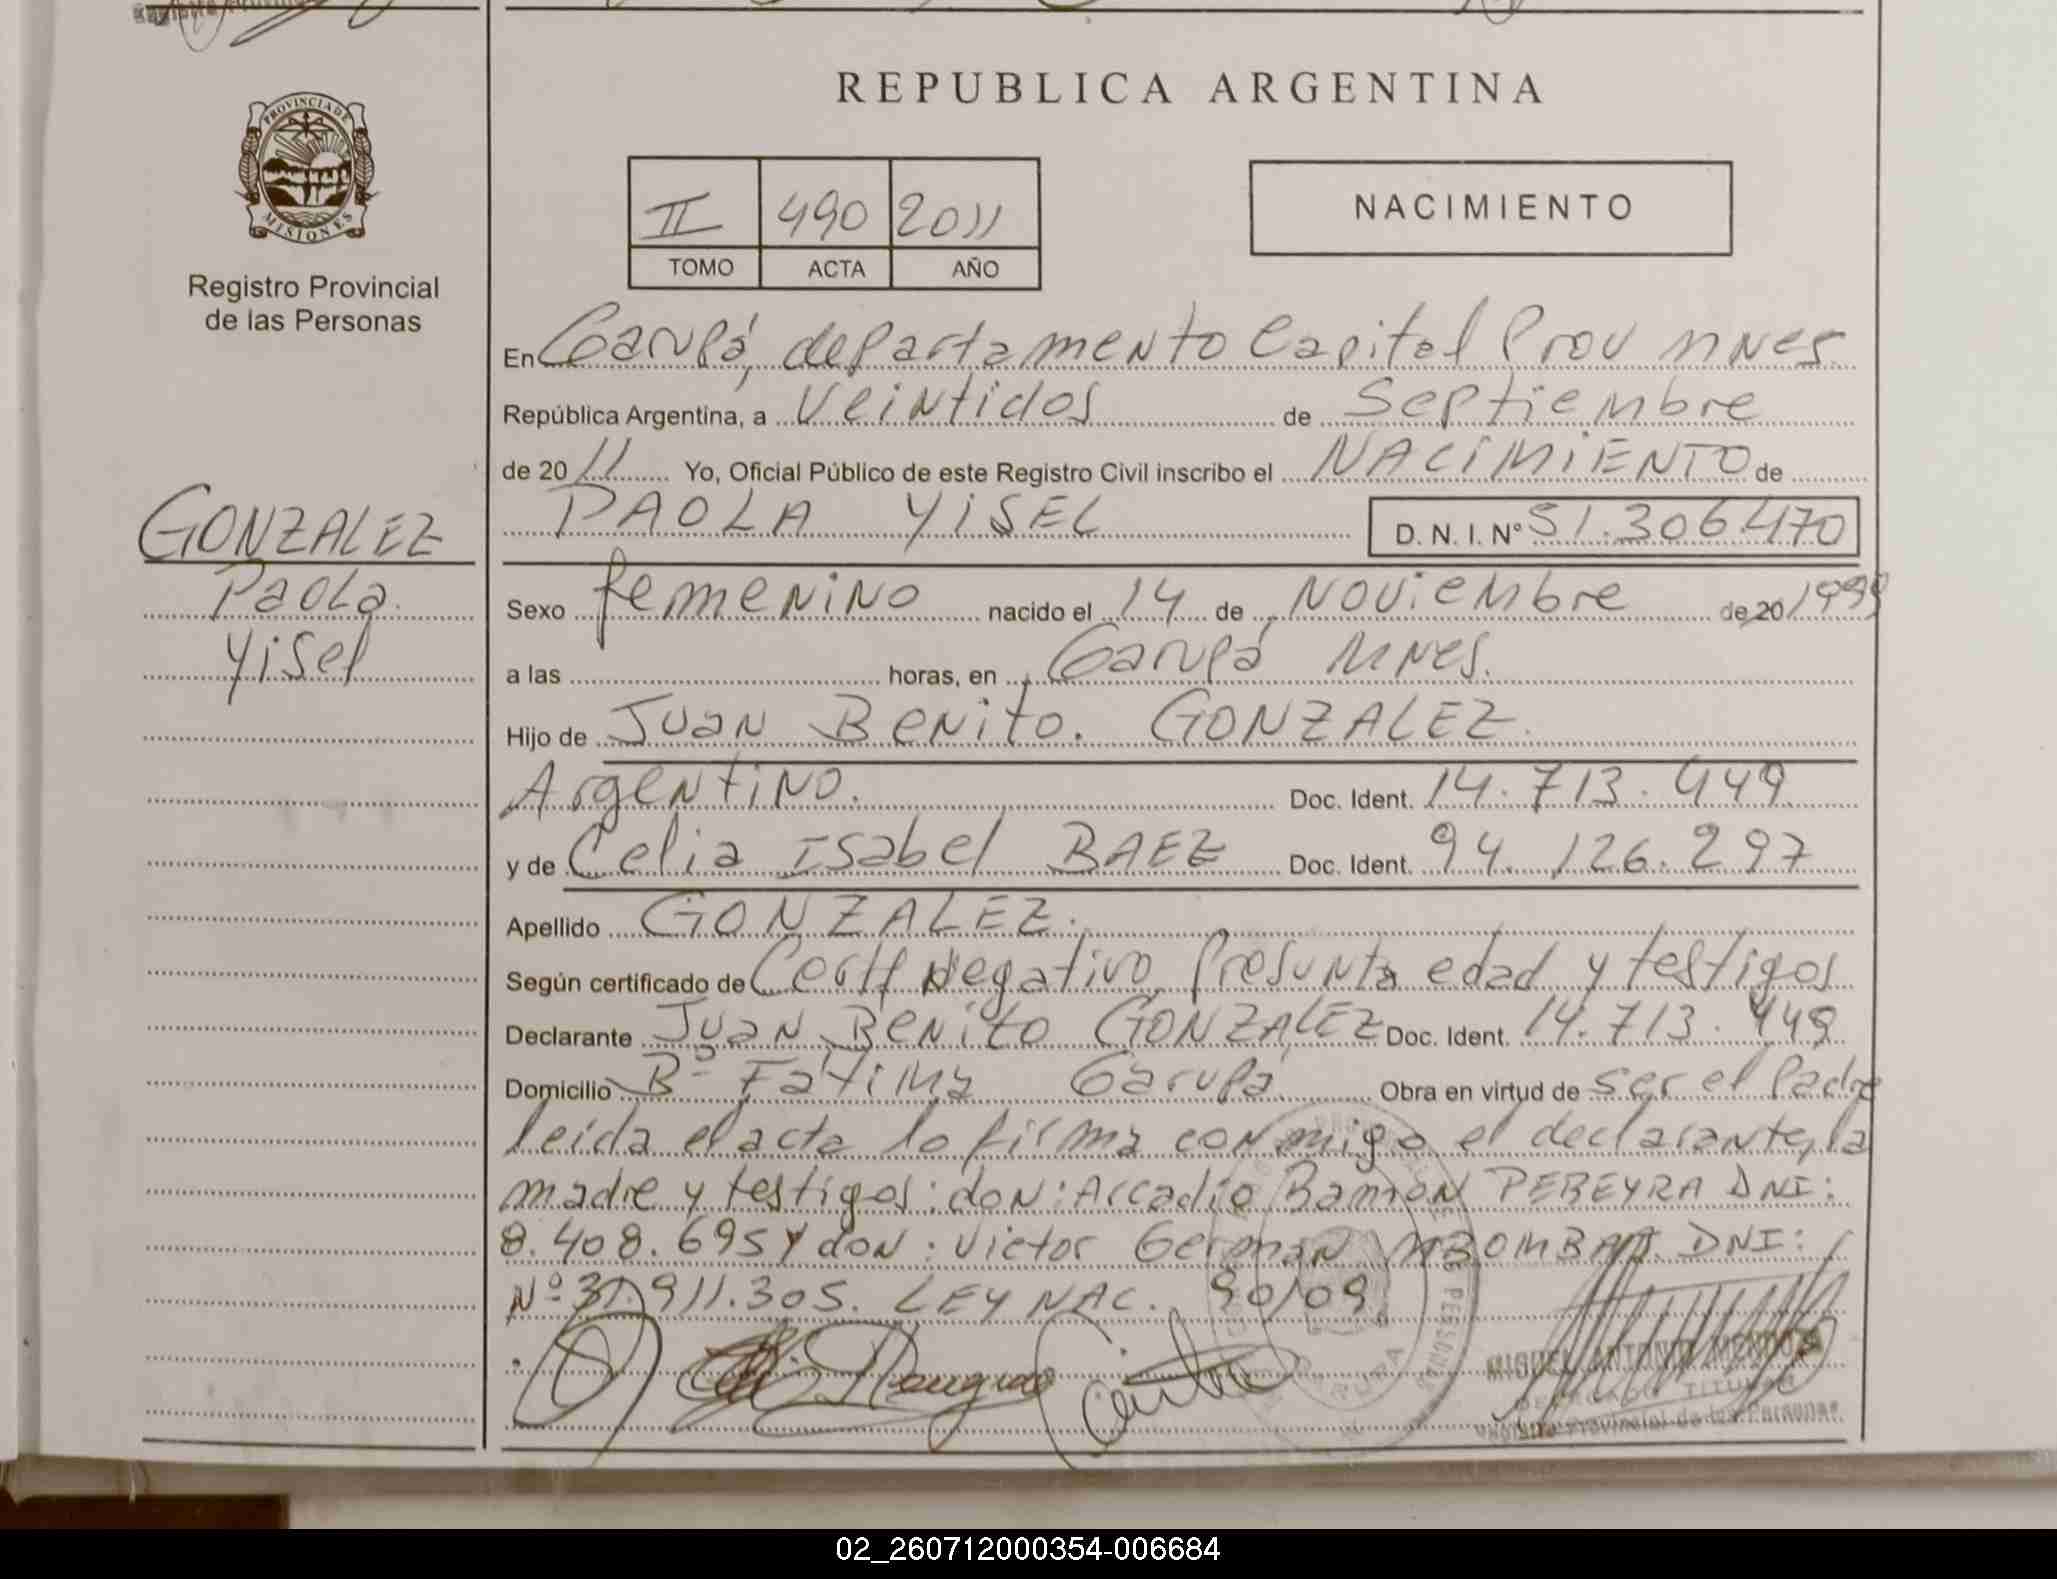 REPUBLICA ARGENTINA
PROVINCIA DE
MISIONES
Registro Provincial
de las Personas
II 490 2011
TOMO ACTA AÑO
NACIMIENTO
En Garupá, departamento Capital Prov Mnes.
República Argentina, a Veintidos de Septiembre
de 2011 Yo, Oficial Público de este Registro Civil inscribo el NACIMIENTO de
PAOLA YISEL D. N. I. Nº 51.306.470
GONZALEZ
Paola
Yisel
Sexo femenino nacido el 14 de Noviembre de 20 1999
a las horas, en Garupá Mnes.
Hijo de Juan Benito. GONZALEZ.
Argentino. Doc. Ident. 14.713.449
y de Celia Isabel BAEZ Doc. Ident. 94.126.297
Apellido GONZALEZ.
Según certificado de Negativo, Presunta edad y testigos
Declarante Juan Benito GONZALEZ Doc. Ident. 14.713.449
Domicilio Bº Fatima Garupá Obra en virtud de ser el Padre
leida el acta lo firma conmigo el declarante, la
madre y testigos: don: Arcadio Ramón PEREYRA DNI:
8.408.695 y don: Victor German DNI:
Nº 37.911.305. LEY NAC. 90/09
MIGUEL ANTONIO
TITULAR
Registro Provincial de las Personas
02_260712000354-006684